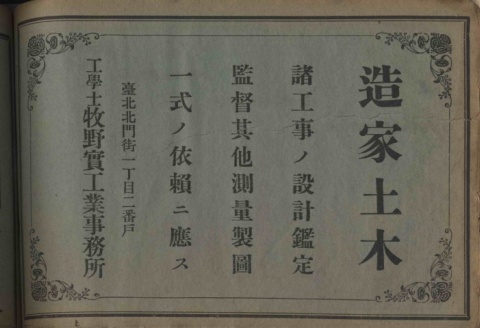 造家土木
諸工事ノ設計鑑定
監督其他測量製圖
一式ノ依頼ニ應ス
臺北北門街一丁目二番戶
工學士牧野實工業事務所